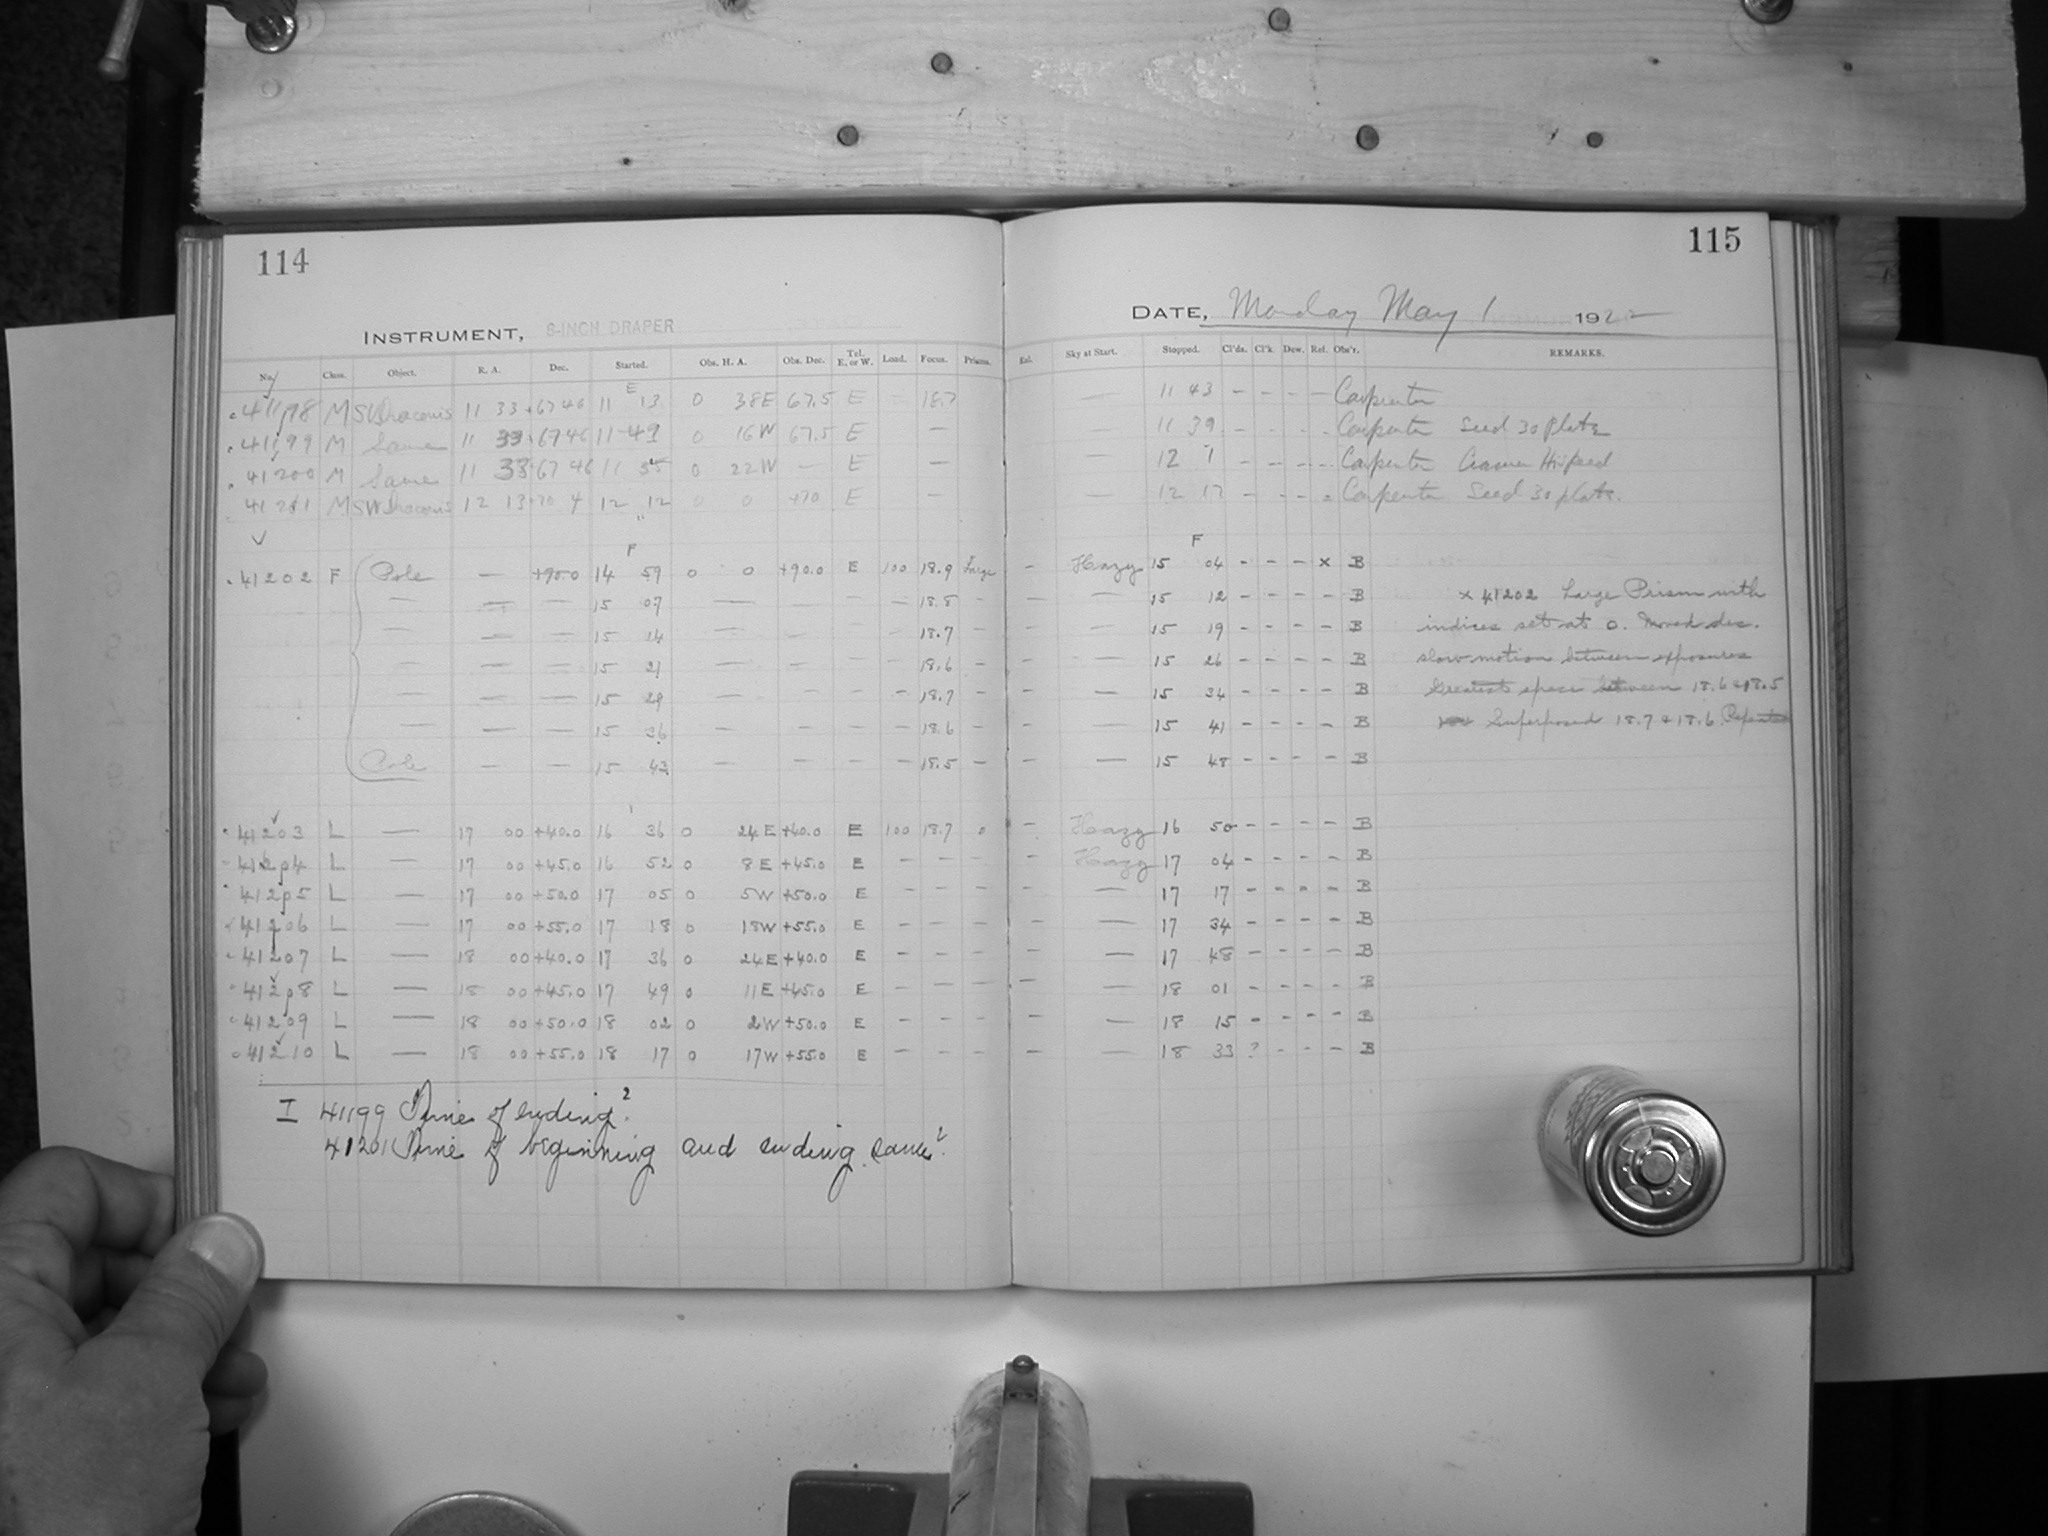 114
INSTRUMENT, 8-INCH DRAPER
No. Class. Object. R. A. Dec. Started. Obs. H. A. Obs. Dec. Tel. E. or W. Load. Focus. Prisms.
E
41198 M SU Draconis 11 33 +67 46 11 13 0 38E 67.5 E 18.7
41199 M Same 11 33 +67 46 11 41 0 16W 67.5 E —
41200 M Same 11 33 +67 46 11 55 0 22W — E —
41201 M SW Draconis 12 13 +70 4 12 12 0 0 +70 E —
F
41202 F Pole — +90.0 14 59 0 0 +90.0 E 100 18.9 Large
— — — 15 07 — — — — 18.8
— — — 15 14 — — — — 18.7 —
— — — 15 21 — — — — 18.6 —
— — — 15 29 — — — — 18.7 —
— — — 15 36 — — — — 18.6 —
Pole — — 15 43 — — — — 18.5 —
41203 L — 17 00 +40.0 16 36 0 24E +40.0 E 100 18.7 0
41204 L — 17 00 +45.0 16 52 0 8E +45.0 E — — —
41205 L — 17 00 +50.0 17 05 0 5W +50.0 E — — —
41206 L — 17 00 +55.0 17 18 0 18W +55.0 E — — —
41207 L — 18 00 +40.0 17 36 0 24E +40.0 E — — —
41208 L — 18 00 +45.0 17 49 0 11E +45.0 E — — —
41209 L — 18 00 +50.0 18 02 0 2W +50.0 E — — —
41210 L — 18 00 +55.0 18 17 0 17W +55.0 E — — —
I 41199 Time of ending?
41201 Time of beginning and ending same?
115
DATE, Monday May 1 1922
Sky at Start. Stopped. Cl'ds. Cl'k. Dew. Ref. Obs'r. REMARKS.
— 11 43 - - - Carpenter
— 11 39 - - - Carpenter Seed 30 Plate
— 12 1 - - - - Carpenter Cramer Hispeed
— 12 17 - - - - Carpenter Seed 30 plate.
F
- Hazy 15 04 - - - x B
— — 15 12 - - - - B x 41202 Large Prism with
— 15 19 - - - - B indices set at 0. Moved dec.
- — 15 26 - - - - B slow motion between exposures
- — 15 34 - - - - B Greatest space between 18.6 & 18.5
- — 15 41 - - - - B Superposed 18.7 & 18.6
- — 15 48 - - - - B
- Hazy 16 50 - - - - B
- Hazy 17 04 - - - - B
— 17 17 - - - - B
- — 17 34 - - - - B
- — 17 48 - - - - B
- — 18 01 - - - - B
— 18 15 - - - - B
- — 18 33 ? - - - B